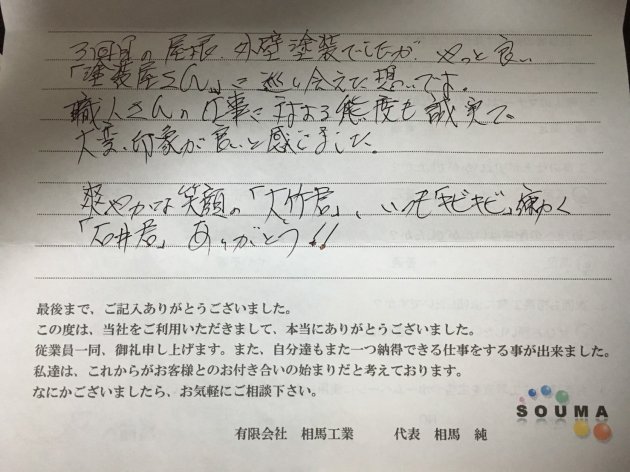 3回目の屋根、外壁塗装でしたが やっと良い
「塗装屋さん」に巡り会えた想いです。
職人さんの仕事に対する態度も誠実で、
大変、印象が良いと感じました。
爽やかな笑顔の「大竹君」、いつも「キビキビ」働く
「石井君」ありがとう!!
最後まで、ご記入ありがとうございました。
この度は、当社をご利用いただきまして、本当にありがとうございました。
従業員一同、御礼申し上げます。また、自分達もまた一つ納得できる仕事をする事が出来ました。
私達は、これからがお客様とのお付き合いの始まりだと考えております。
なにかございましたら、お気軽にご相談下さい。
SOUMA
有限会社 相馬工業 代表 相馬 純